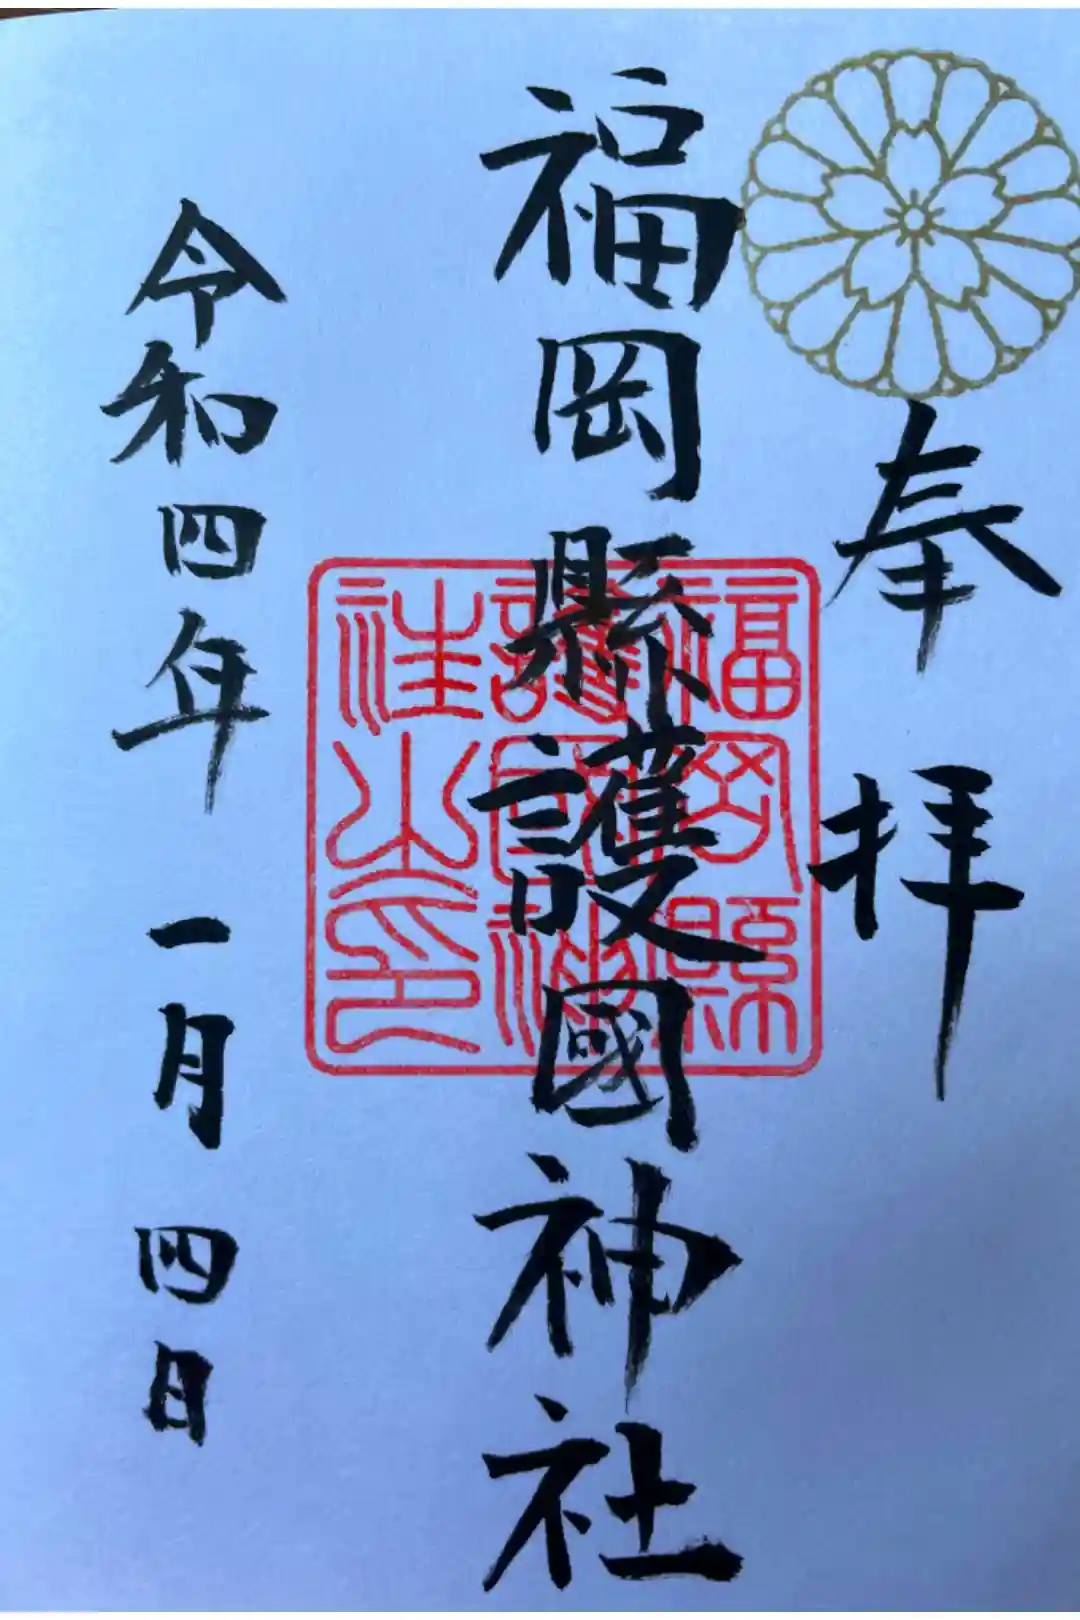 奉拝
福岡縣護國神社
福岡縣
護國神
社之印
令和四年 一月 四日